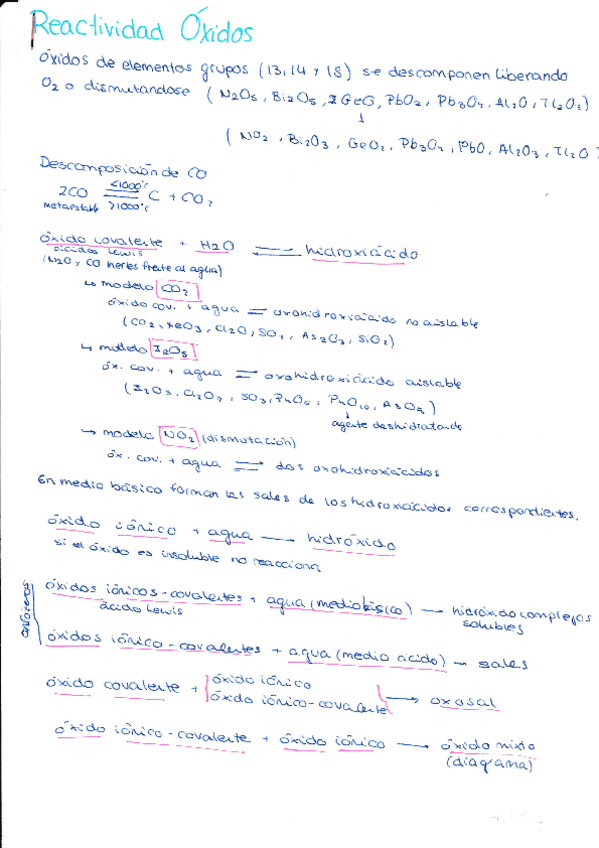 Reactividad Óxidos
óxidos de elementos grupos (13, 14 y 15) se descomponen liberando
O2 o dismutandose ( N2O5, Bi2O5, PbO2, Pb3O4, Tl2O3)
( NO2, Bi2O3, GeO2, Pb3O4, PbO, Al2O3, Tl2O
Descomposición de CO
<1000°C
2CO ⇌ C + CO2
metaestable >1000°C
óxido covalente + H2O ⇌ hidroxiácido
ácidos Lewis
(N2O y CO inertes frente al agua)
↳ modelo CO2
óxido cov. + agua = oxohidroxiácido no aislable
(CO2, XeO3, Cl2O, SO2, As2O3, SiO2)
↳ modelo I2O5
óx. cov. + agua = oxohidroxiácido aislable
(I2O5, Cl2O7, SO3, P4O6, P4O10, As2O5)
↓
agente deshidratante
→ modelo NO2 (dismutación)
óx. cov. + agua ⇌ dos oxohidroxiácidos
En medio básico forman las sales de los hidroxiácidos correspondientes.
óxido iónico + agua → hidróxido
si el óxido es insoluble no reacciona
óxidos iónicos-covalentes + agua (medio básico) → hidróxido complejos
ácido Lewis solubles
óxidos iónico-covalentes + agua (medio acido) → sales
óxido covalente + óxido iónico
óxido iónico-covalente → oxosal
óxido iónico-covalente + óxido iónico → óxido mixto
(diagrama)